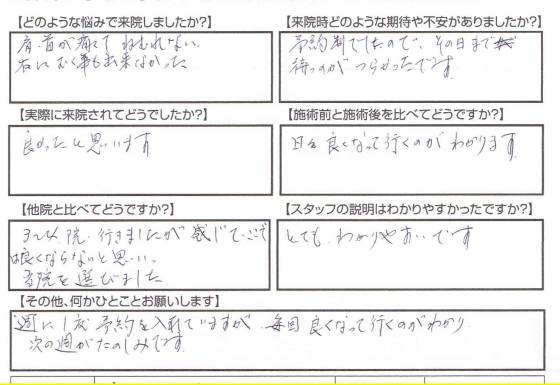 【どのような悩みで来院しましたか?】
肩・首が痛くて ねむれない。
右にむく事も出来なかった
【来院時どのような期待や不安がありましたか?】
予約制でしたので、その日まで
待つのが つらかったです。
【実際に来院されてどうでしたか?】
良かったと思います
【施術前と施術後を比べてどうですか?】
日々 良くなって行くのが わかります。
【他院と比べてどうですか?】
院 行きましたが 感じて
は良くならないと思い、
院を選びました
【スタッフの説明はわかりやすかったですか?】
とても わかりやすいです
【その他、何かひとことお願いします】
週に1度 予約を入れていますが 毎回 良くなって行くのがわかり
次の週がたのしみです。